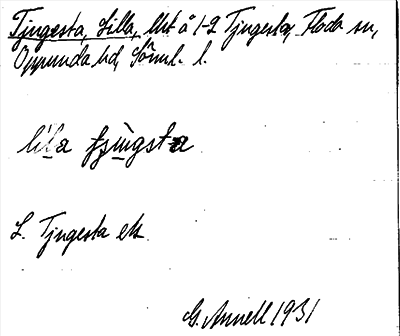 Tjugesta, Lilla, lht å 1-2 Tjugesta, Floda sn,
Oppunda hd, Söml. l.
lila
L. Tjugesta ek.
G. Annell 1931